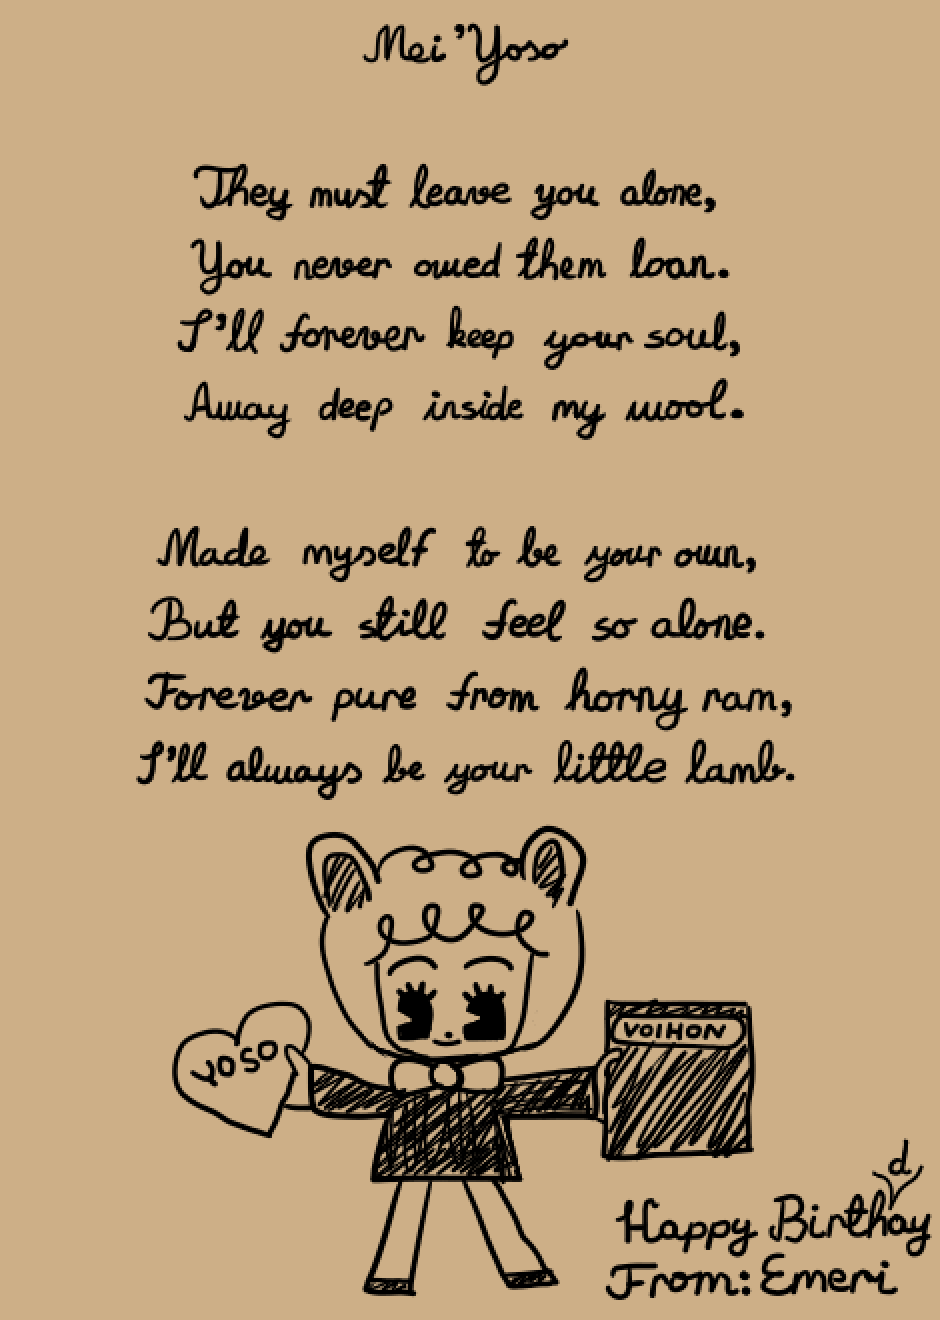 Mei 'Yoso
They must leave you alone,
You never owed them loan.
I'll forever keep your soul,
Away deep inside my wool.
Made myself to be your own,
But you still feel so alone.
Forever pure from horny ram,
I'll always be your little lamb.
YOSO
VOIHON
d
Happy Birthay
From: Emeri